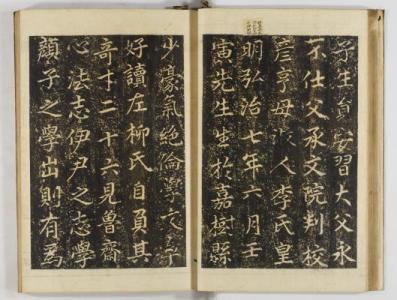 子生員安習大父永
不仕父承文院判校
彦亨母人李氏皇
明弘治七年六月壬
寅先生生於嘉樹縣
少豪氣絶倫學文字
好讀左柳氏自負其
奇才二十六見魯齋
心法志伊尹之志學
顔子之學出則有爲